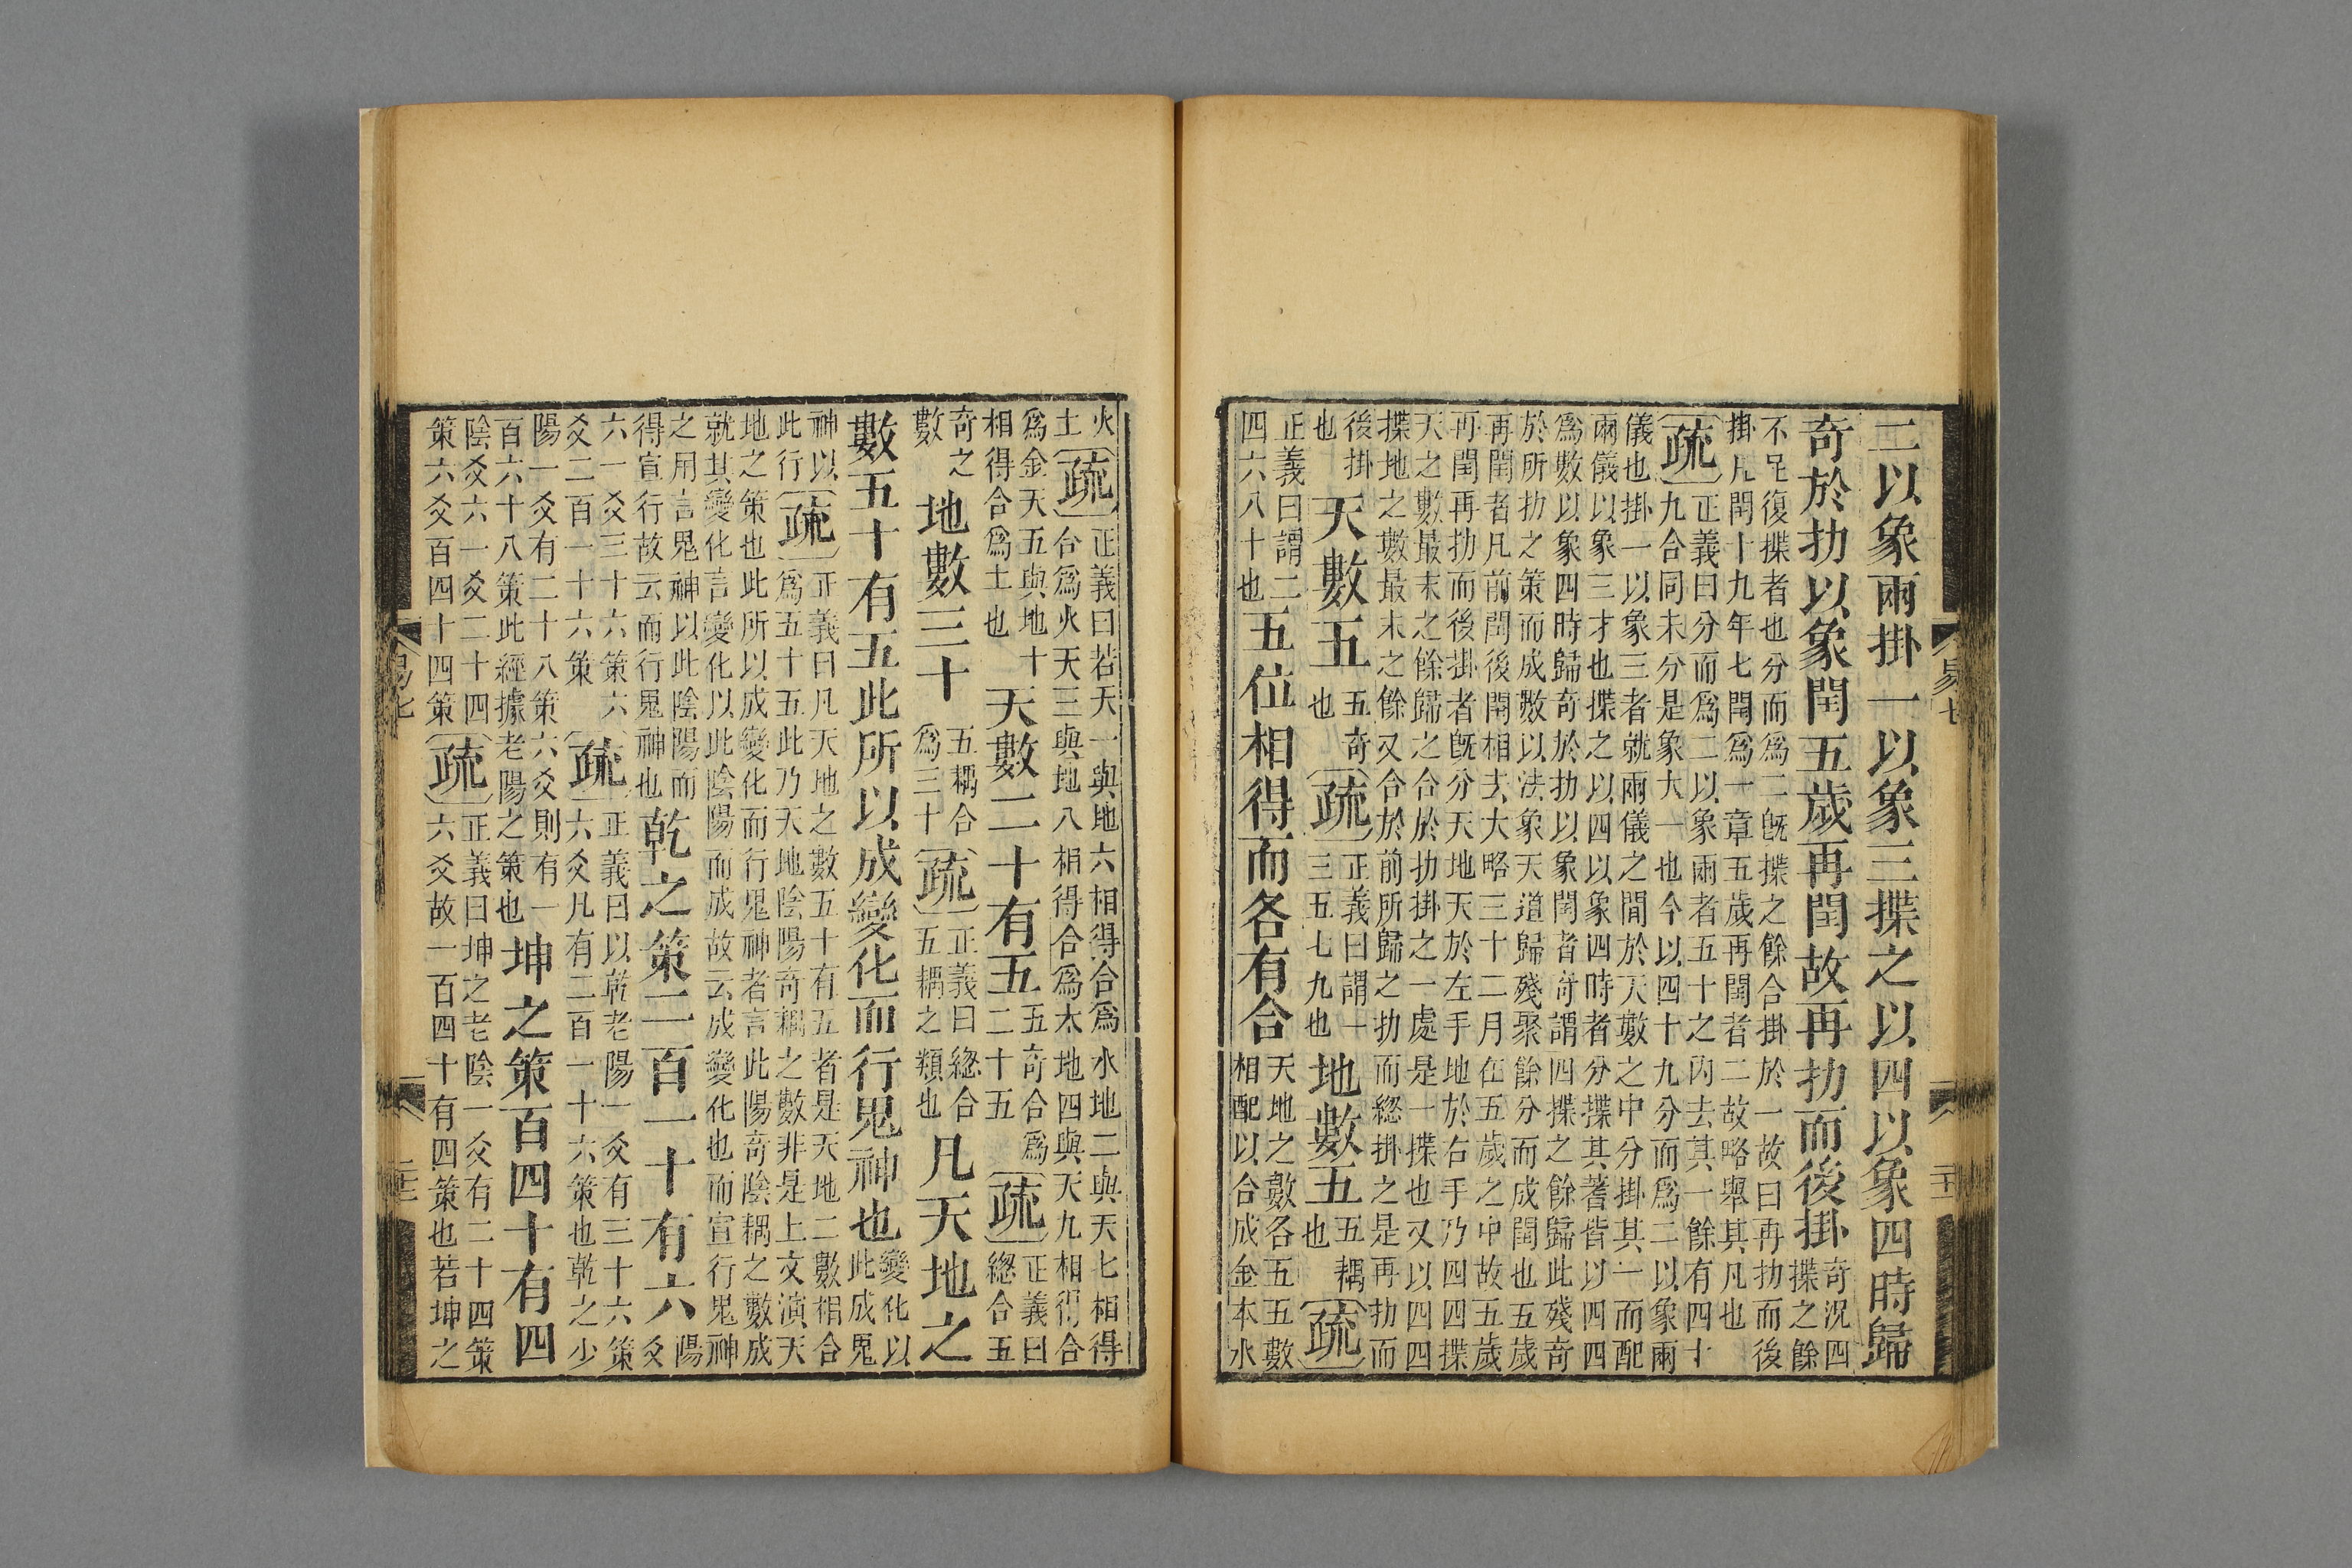 二以象兩掛一以象三揲之以四以象四時歸
奇於扐以象閏五歲再閏故再扐而後掛奇況四
揲之餘
不足復揲者也分而爲二旣揲之餘合掛於一故曰再扐而後
掛凡閏十九年七閏爲一章五歲再閏者二故略舉其凡也
疏正義曰分而爲二以象兩者五十之內去其一餘有四十
九合同未分是象大一也今以四十九分而爲二以象兩
儀也掛一以象三者就兩儀之間於天數之中分掛其一而配
兩儀以象三才也揲之以四以象四時者分揲其蓍皆以四四
爲數以象四時歸奇於扐以象閏者奇謂四揲之餘歸此殘奇
於所扐之策而成數以法象天道歸殘聚餘分而成閏也五歲
再閏者凡前閏後閏相去大略三十二月在五歲之中故五歲
再閏再扐而後掛者旣分天地天於左手地於右手乃四四揲
天之數最末之餘歸之合於扐掛之一處是一揲也又以四四
揲地之數最末之餘又合於前所歸之扐而總掛之是再扐而
後掛也天數五五奇也疏正義曰謂一三五七九也地數五五耦也疏
正義曰謂二四六八十也五位相得而各有合天地之數各五五數
相配以合成金木水
火土疏正義曰若天一與地六相得合爲水地二與天七相得
合爲火天三與地八相得合爲木地四與天九相得合
爲金天五與地十相得合爲土也天數二十有五五奇合爲二十五疏正義曰總合五
奇之數地數三十五耦合爲三十疏正義曰總合五耦之類也凡天地之
數五十有五此所以成變化而行鬼神也變化以
此成鬼
神以此行疏正義曰凡天地之數五十有五者是天地二數相合
爲五十五此乃天地陰陽奇耦之數非是上文演天
地之策也此所以成變化而行鬼神者言此陽奇陰耦之數成
就其變化言變化以此陰陽而成故云成變化也而宣行鬼神
之用言鬼神以此陰陽而得宣行故云而行鬼神也乾之策二百一十有六陽爻
六一爻三十六策六爻二百一十六策疏正義曰以乾老陽一爻有三十六策
六爻凡有二百一十六策也乾之少
陽一爻有二十八策六爻則有一百六十八策此經據老陽之策也坤之策百四十有四
陰爻六一爻二十四策六爻百四十四策疏正義曰坤之老陰一爻有二十四策
六爻故一百四十有四策也若坤之
易七
二十一